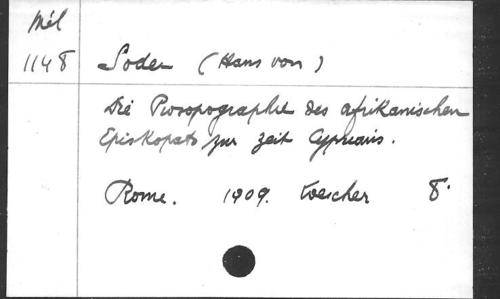 Mél
1148 Soden (Hans von)
Die Prosopographie des afrikanischen
Episkopats zur Zeit Cyprians.
Rome. 1909. Loescher 8°